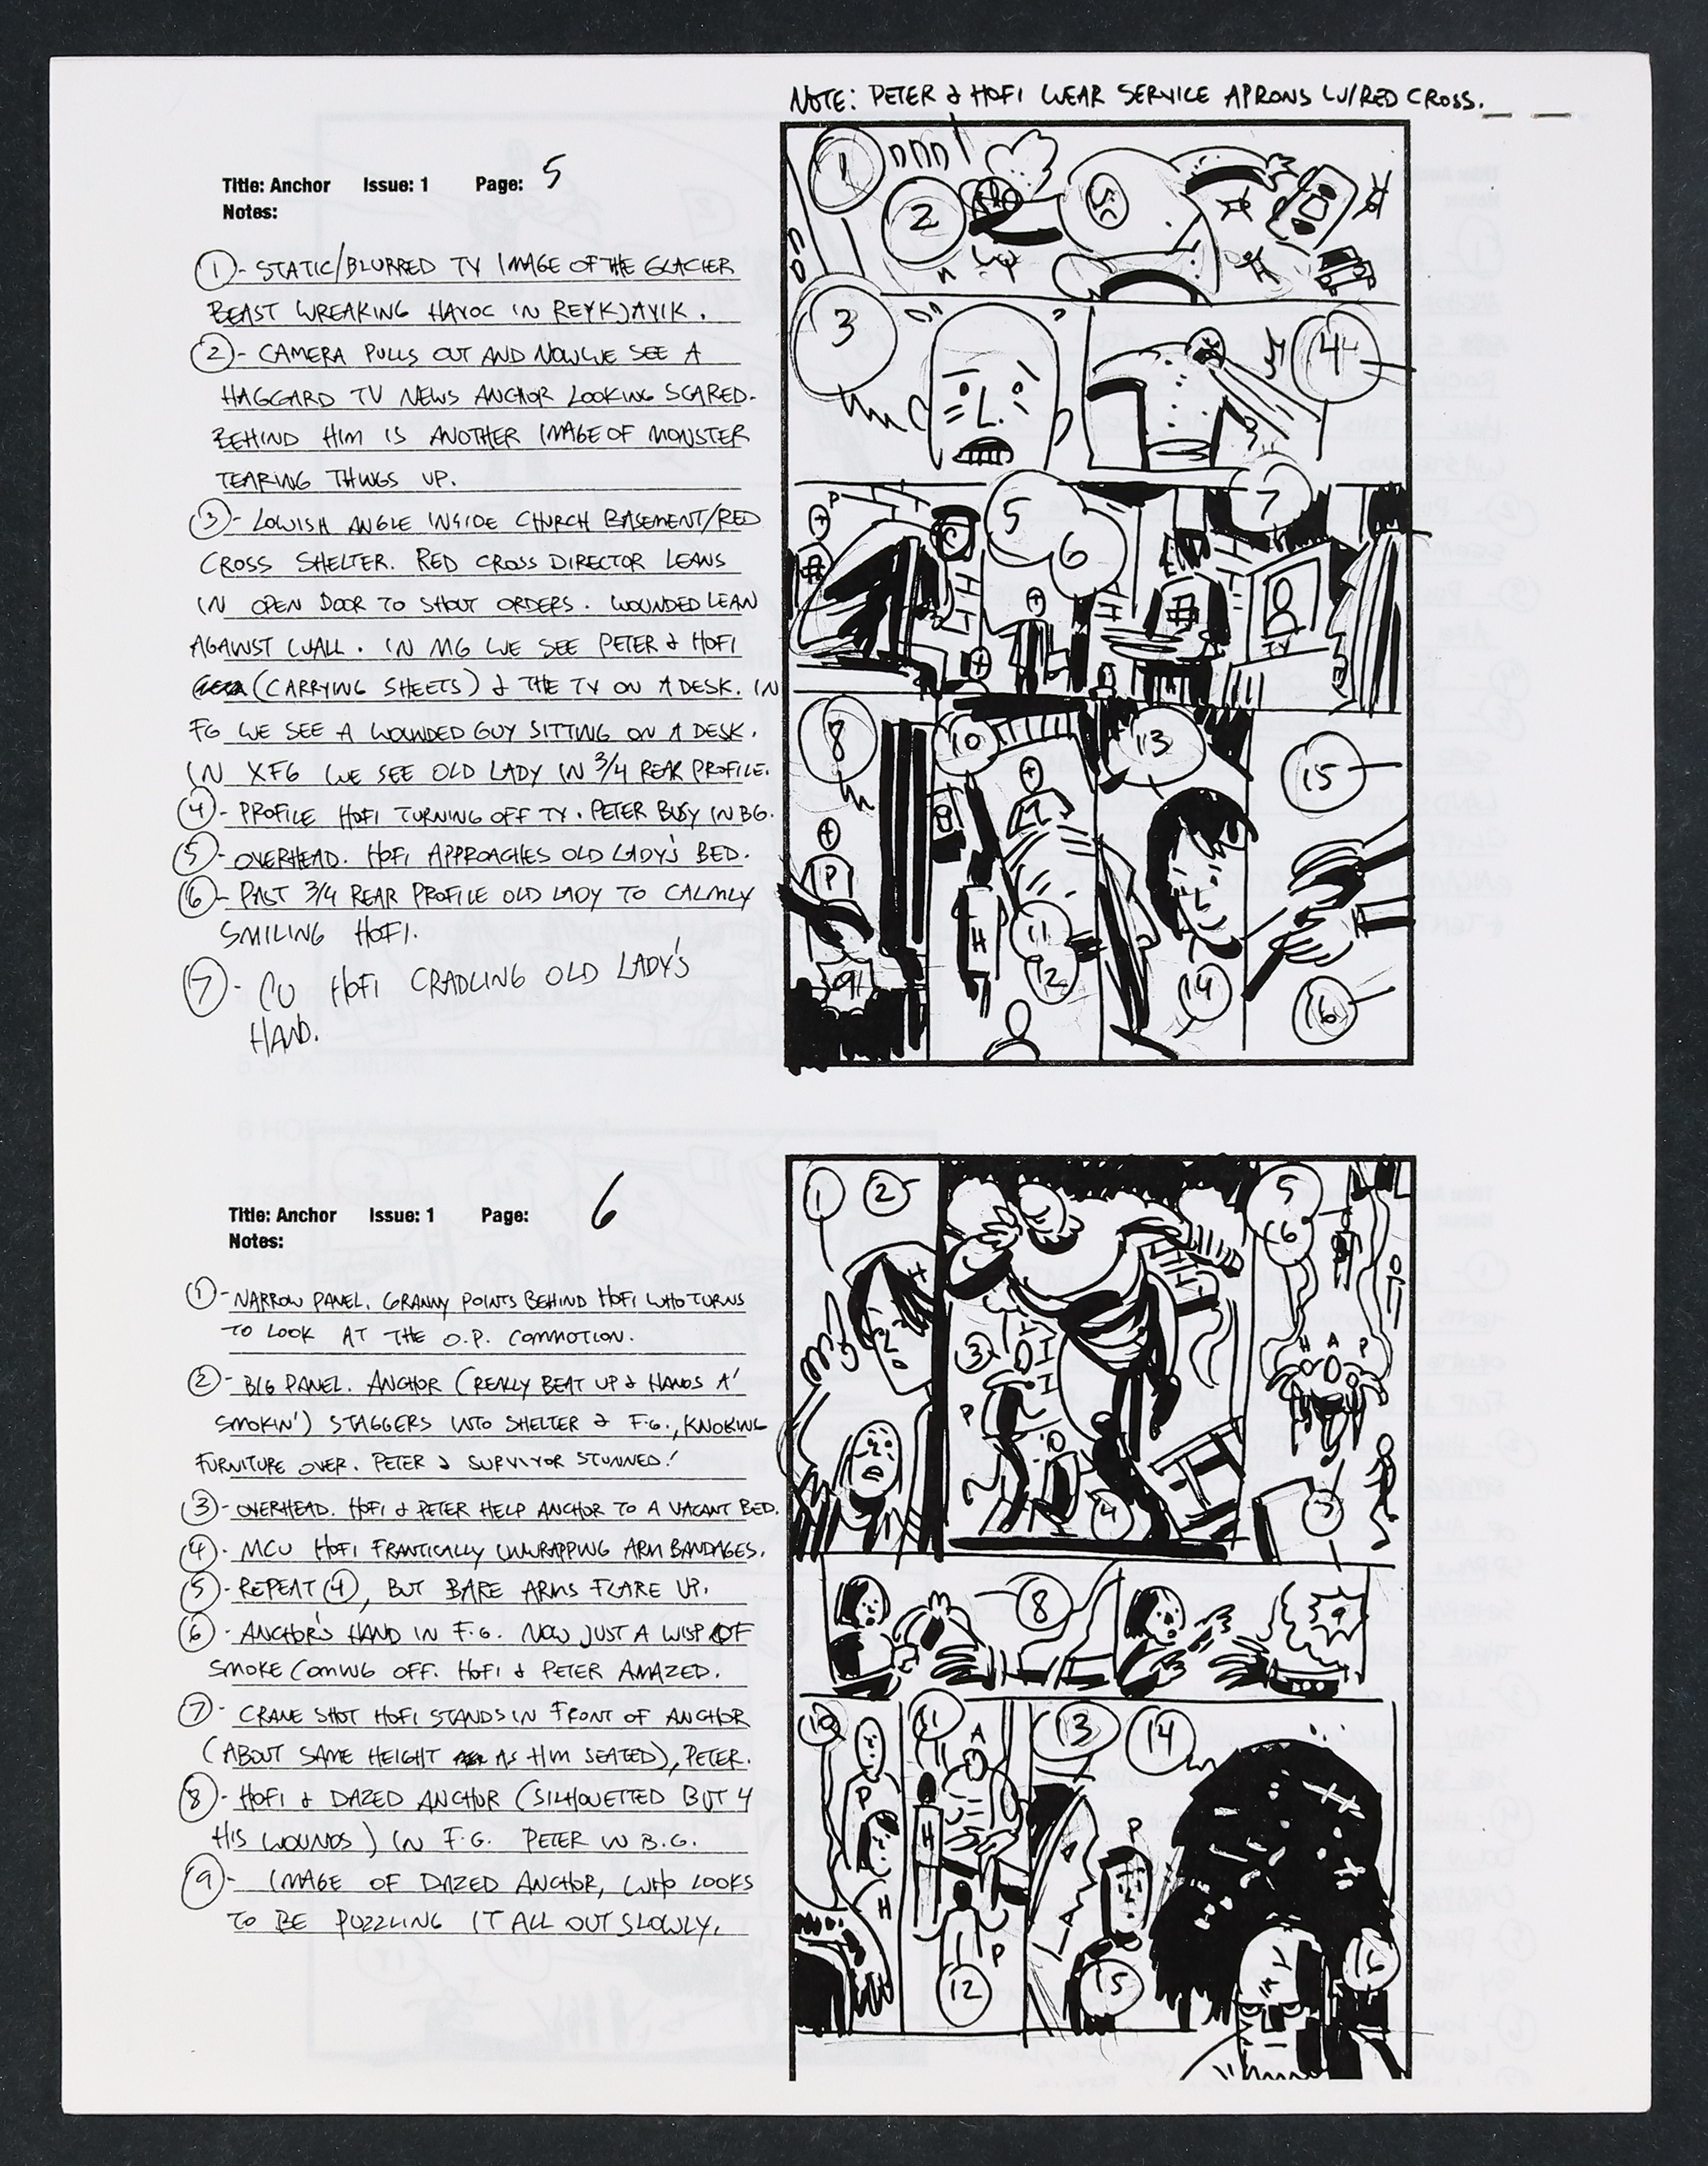 NOTE: PETER & HOFI WEAR SERVICE APRONS W/RED CROSS.
Title: Anchor Issue: 1 Page: 5
Notes:
1 - STATIC/BLURRED TV IMAGE OF THE GLACIER
BEAST WREAKING HAVOC IN REYKJAVIK.
2 - CAMERA PULLS OUT AND NOW WE SEE A
HAGGARD TV NEWS ANCHOR LOOKING SCARED.
BEHIND HIM IS ANOTHER IMAGE OF MONSTER
TEARING THINGS UP.
3 - LOWISH ANGLE INSIDE CHURCH BASEMENT/RED
CROSS SHELTER. RED CROSS DIRECTOR LEANS
IN OPEN DOOR TO SHOUT ORDERS. WOUNDED LEAN
AGAINST WALL. IN MG WE SEE PETER & HOFI
(CARRYING SHEETS) & THE TV ON A DESK. IN
FG WE SEE A WOUNDED GUY SITTING ON A DESK.
IN XFG WE SEE OLD LADY IN 3/4 REAR PROFILE.
4 - PROFILE HOFI TURNING OFF TV. PETER BUSY IN BG.
5 - OVERHEAD. HOFI APPROACHES OLD LADY'S BED.
6 - PAST 3/4 REAR PROFILE OLD LADY TO CALMLY
SMILING HOFI.
7 - CU HOFI CRADLING OLD LADY'S
HAND.
1
2
3
4
5
6
7
P
TV
8
10
13
15
P
9
H
11
12
14
16
Title: Anchor Issue: 1 Page: 6
Notes:
1 - NARROW PANEL. GRANNY POINTS BEHIND HOFI WHO TURNS
TO LOOK AT THE O.P. COMMOTION.
2 - BIG PANEL. ANCHOR (REALLY BEAT UP & HANDS A'
SMOKIN') STAGGERS INTO SHELTER & F.G., KNOKING
FURNITURE OVER. PETER & SURVIVOR STUNNED!
3 - OVERHEAD. HOFI & PETER HELP ANCHOR TO A VACANT BED.
4 - MCU HOFI FRANTICALLY UNWRAPPING ARM BANDAGES.
5 - REPEAT 4, BUT BARE ARMS FLARE UP.
6 - ANCHOR'S HAND IN F.G. NOW JUST A WISP OF
SMOKE COMING OFF. HOFI & PETER AMAZED.
7 - CRANE SHOT HOFI STANDS IN FRONT OF ANCHOR
(ABOUT SAME HEIGHT AS HIM SEATED), PETER.
8 - HOFI & DAZED ANCHOR (SILHOUETTED BUT 4
HIS WOUNDS) IN F.G. PETER IN B.G.
9 - IMAGE OF DAZED ANCHOR, WHO LOOKS
TO BE PUZZLING IT ALL OUT SLOWLY.
1
2
5
6
H
3
P
4
H A P
7
8
9
10
11
13
14
A
P
H
H
P
P
12
15
16